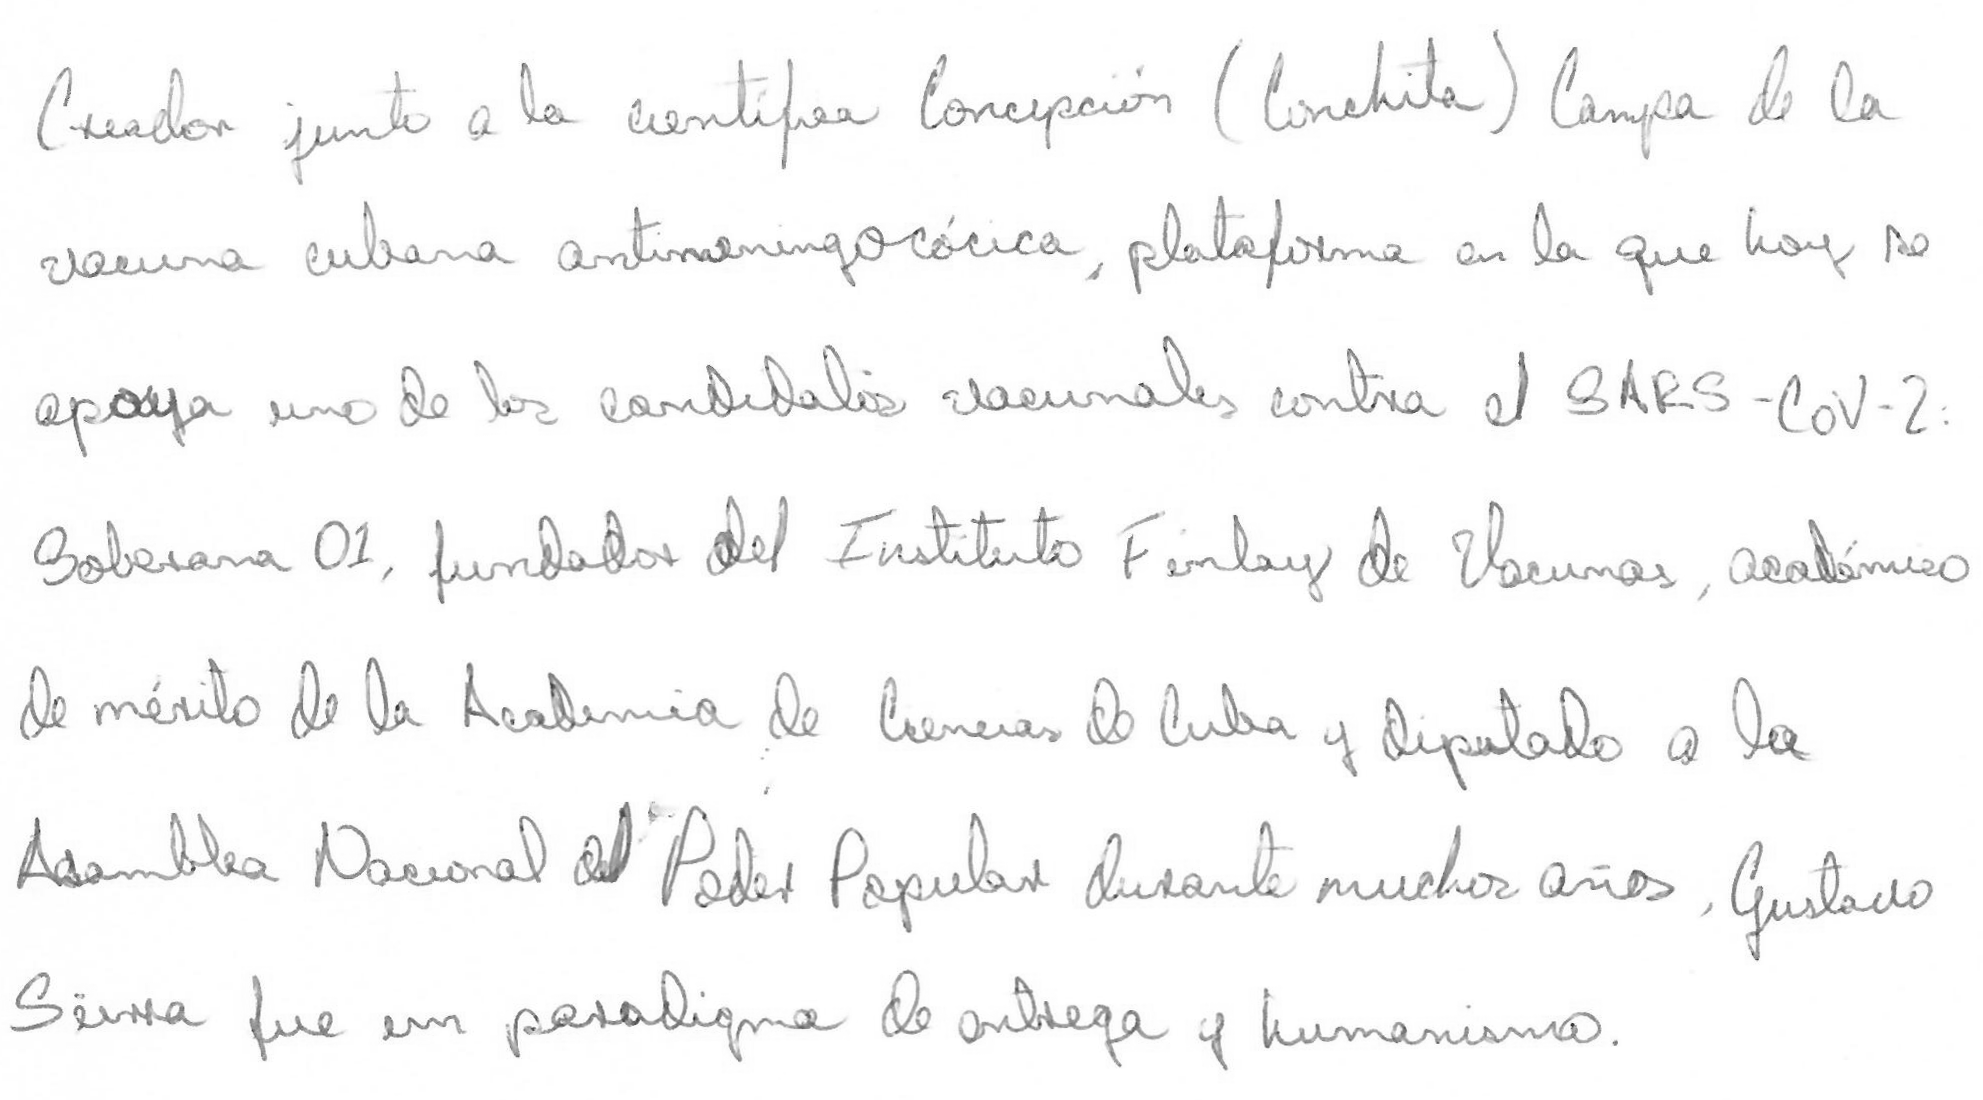 Creador junto a la científica Concepción (Conchita) Campa de la
vacuna cubana antimeningocócica, plataforma en la que hoy se
apoya uno de los candidatos vacunales contra el SARS-CoV-2:
Soberana 01, fundador del Instituto Finlay de Vacunas, académico
de mérito de la Academia de Ciencias de Cuba y diputado a la
Asamblea Nacional del Poder Popular durante muchos años, Gustavo
Sierra fue un paradigma de entrega y humanismo.